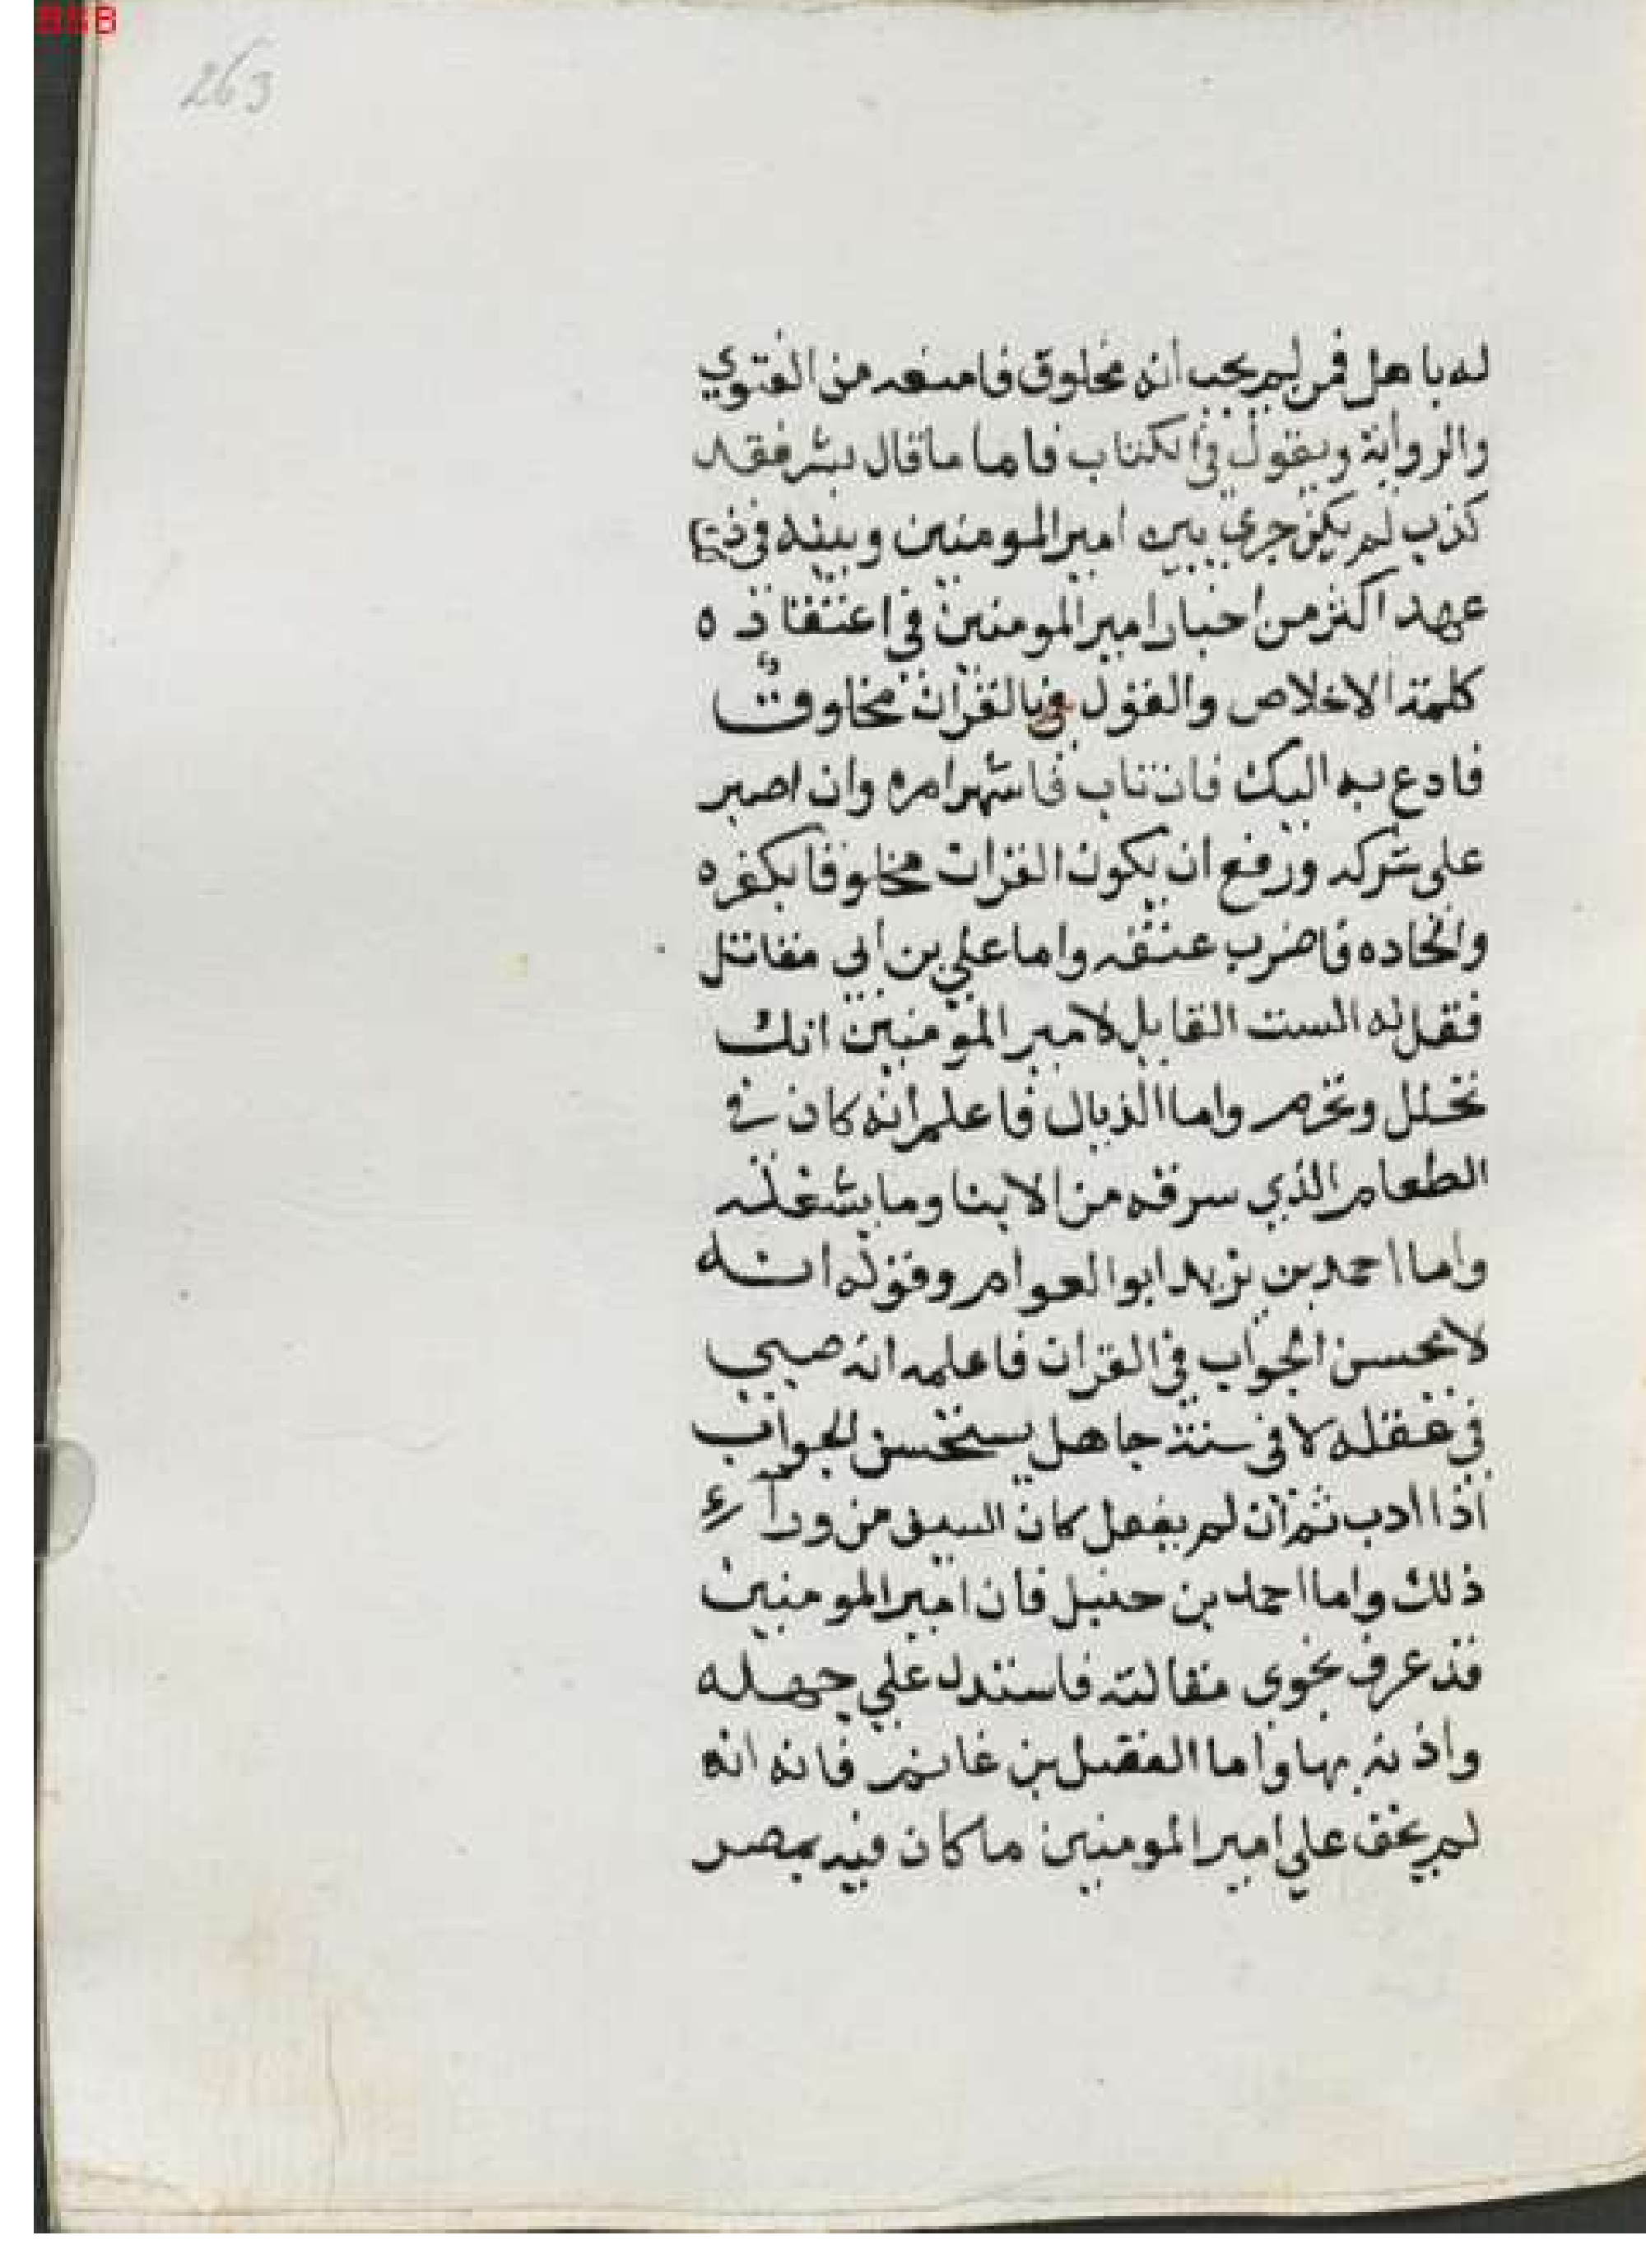 BSB
263
له باهل فمن لم يجب انه مخلوق فامنعه من الفتوي
والرواية ويقول في الكتاب فاما ما قال بشر فقد
كذب لم يكن جري بين امير المومنين وبينه في ذ
عهد اكثر من اخبار امير المومنين في اعتقاد ه
كلمة الاخلاص والقول في بالقران مخلوق
فادع به اليك فان تاب فاشهر امره وان اصر
على شركه ورفع ان يكون القران مخلوقا بكفره
والحاده فاضرب عنقه واما علي بن ابي مقاتل
فقل له الست القايل لامير المومنين انك
تحلل وتحرم واما الذيال فاعلم انه كان في
الطعام الذي سرقه من الابنا وما يشغله
واما احمد بن يزيد ابوا العوام وقوله انه
لا يحسن الجواب في القران فاعلمه انه صبي
في عقله لا في سنة جاهل يستحسن الجواب
اذا ادب ثم ان لم يفعل كان السيف من ورآء
ذلك واما احمد بن حنبل فان امير المومنين
قد عرف نحوى مقالته فاستدل علي جهله
واذ نه بها واما الفضل بن غانم فانه انه
لم يخف علي امير المومنين ما كان فيه بمصر